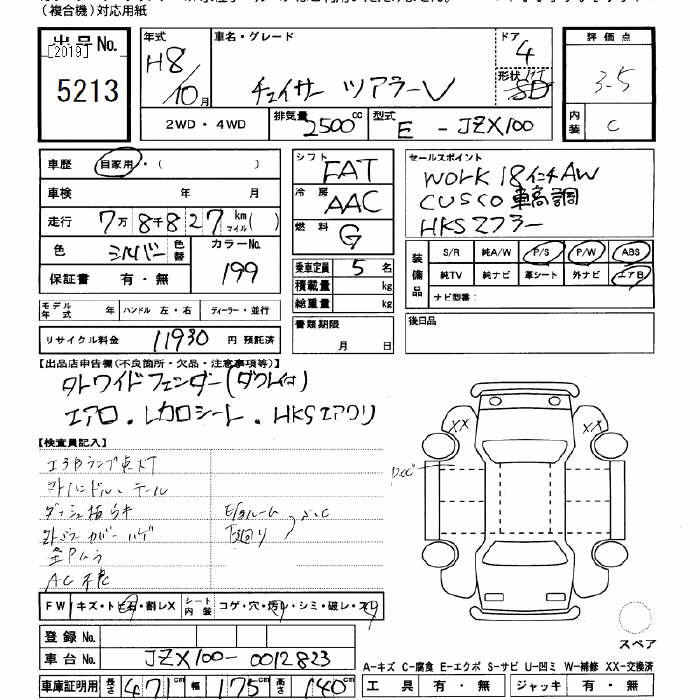 （複合機）対応用紙
出品No.
[2019]
5213
年式
H8/10月
車名・グレード
チェイサー ツアラーV
ドア
4
形状
評価点
3.5
内装
C
2WD・4WD
排気量 2500cc
型式 E - JZX100
車歴 自家用・( )
車検 年 月
走行 7万8千827km マイル( )
色 シルバー 色替 カラーNo. 199
保証書 有・無
シフト FAT
冷房 AAC
燃料 G
乗車定員 5名
積載量 kg
総重量 kg
セールスポイント
WORK 18インチAW
CUSCO 車高調
HKSマフラー
装備品
S/R 純A/W P/S P/W ABS
純TV 純ナビ 革シート 外ナビ エアB
ナビ型番：
モデル年式 年 ハンドル 左・右 ディーラー・並行
リサイクル料金 11930 円 預託済
書類期限
月 日
後日品
【出品店申告欄(不良箇所・欠品・注意事項等)】
外ワイドフェンダー(ダクト付)
エアロ．レカロシート．HKSエアクリ
【検査員記入】
エアBランプ点灯
外ハンドル、テール
ダッシュ板ウキ
外ミラーカバーハゲ
全Pムラ
AC不良
E/gルーム
下廻り
FW キズ・トビ石・割レX シート内装 コゲ・穴・汚レ・シミ・破レ・スレ
XX XX
登録No.
車台No. JZX100-0012823
スペア
A-キズ C-腐食 E-エクボ S-サビ U-凹ミ W-補修 XX-交換済
車庫証明用 長さ 471cm 幅 175cm 高さ 140cm
工具 有・無 ジャッキ 有・無